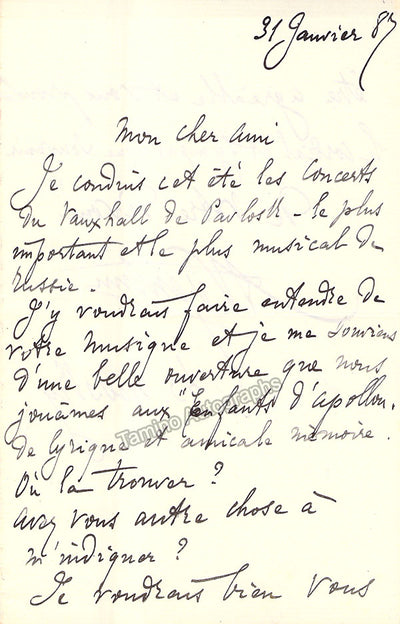 31 Janvier 87
Mon cher ami
Je conduis cet été les Concerts
du Vauxhall de Pavlosk - le plus
important et le plus musical de
Russie.
J'y voudrais faire entendre de
votre musique et je me souviens
d'une belle ouverture que nous
jouâmes aux "Enfants d'apollon.
de lyrique et amicale mémoire.
Où la trouver ?
avez vous autre chose à
m'indiquer ?
Je voudrais bien vous
Tamino Autographs